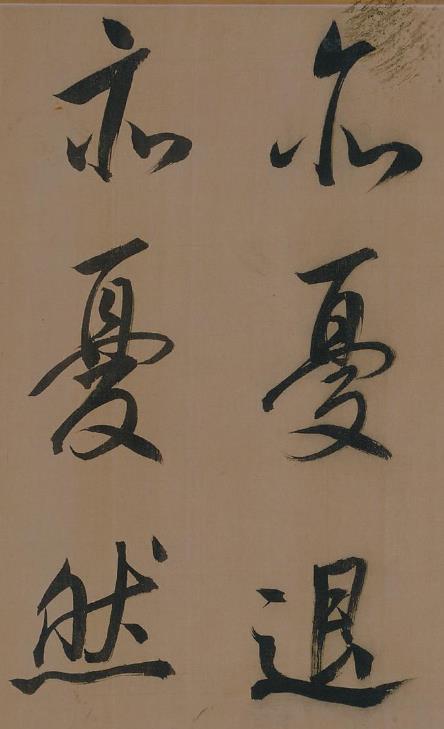 亦憂退
亦憂然